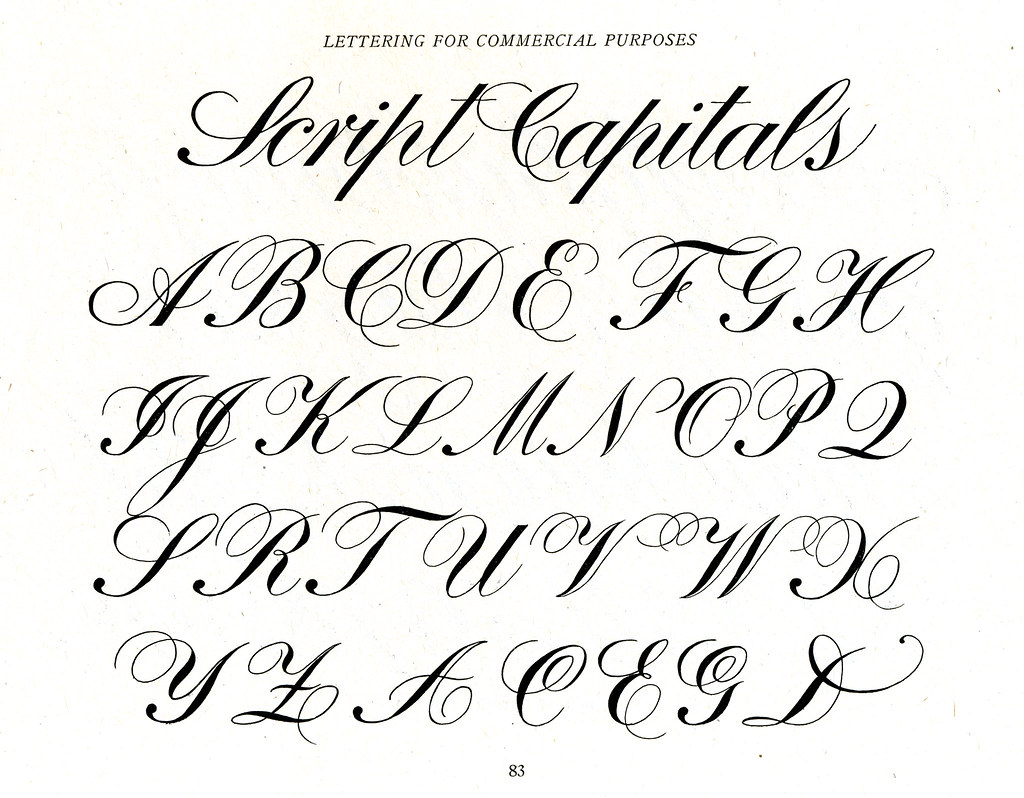 LETTERING FOR COMMERCIAL PURPOSES
Script Capitals
A B C D E F G H
I J K L M N O P Q
S R T U V W X
Y Z A C E G D
83